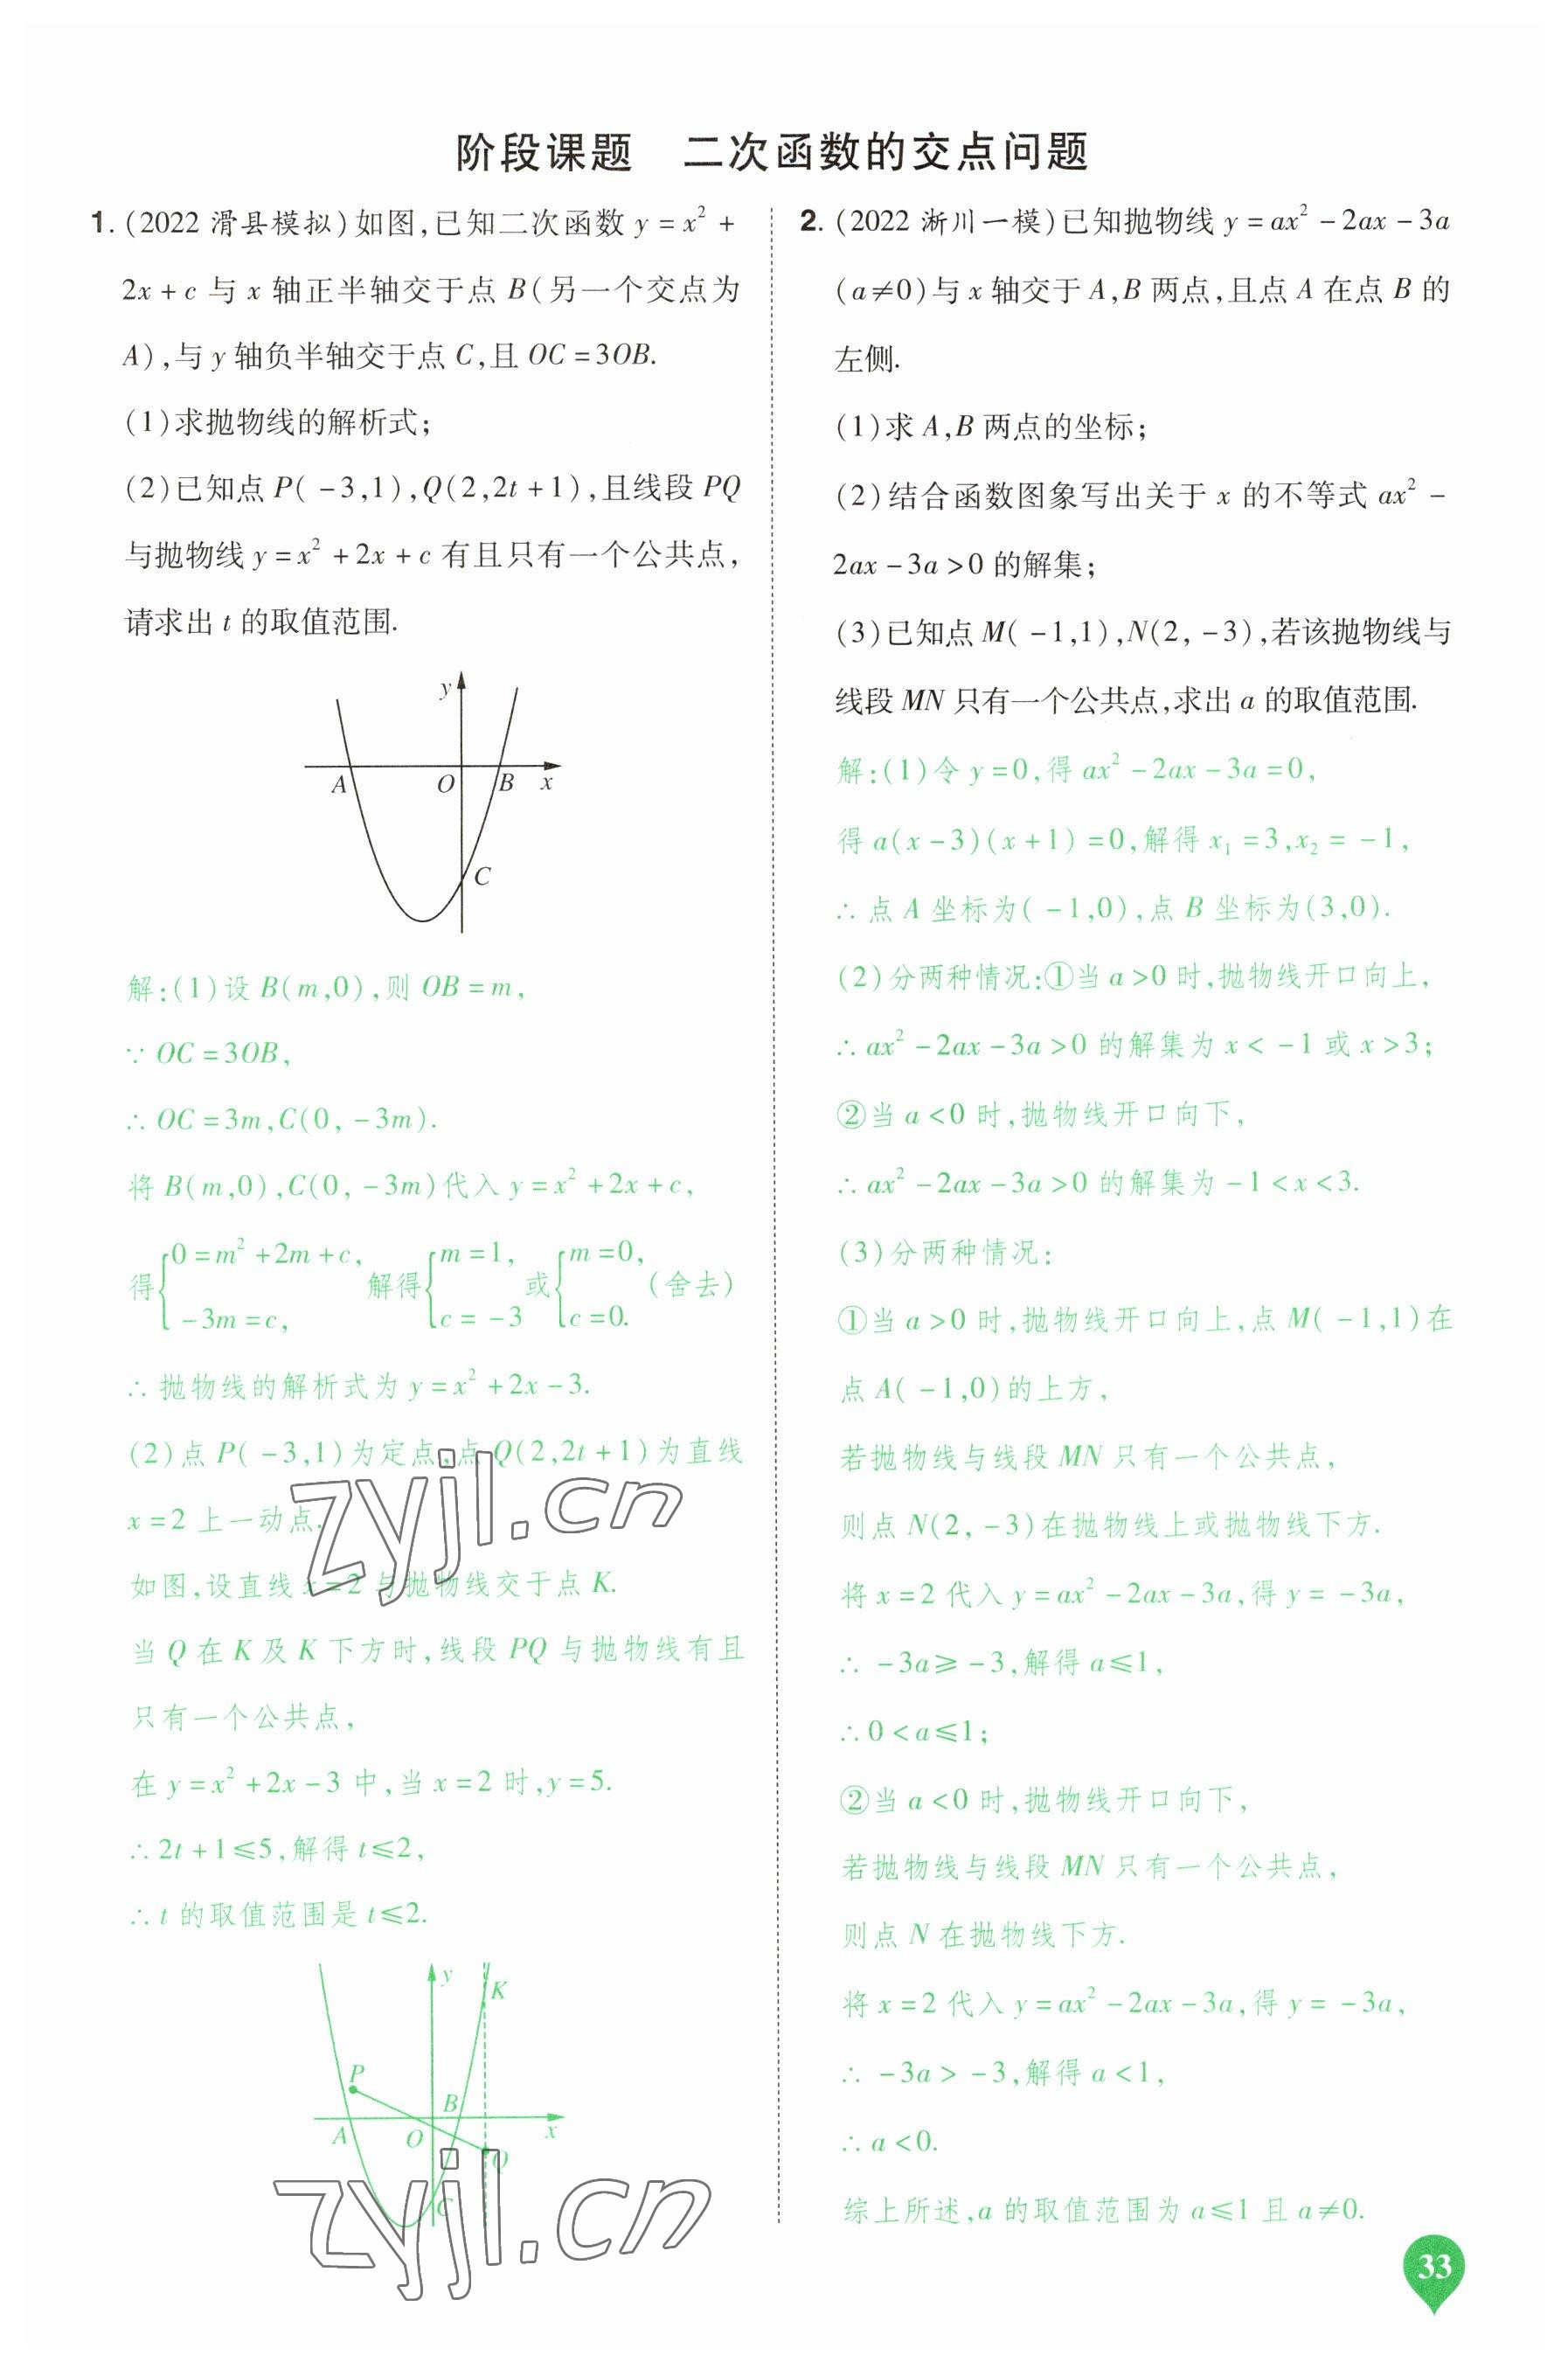 阶段课题　二次函数的交点问题
1. (2022 滑县模拟)如图,已知二次函数 y = x² +
2x + c 与 x 轴正半轴交于点 B(另一个交点为
A),与 y 轴负半轴交于点 C,且 OC = 3OB.
(1)求抛物线的解析式;
(2)已知点 P( -3,1),Q(2,2t + 1),且线段 PQ
与抛物线 y = x² + 2x + c 有且只有一个公共点,
请求出 t 的取值范围.
y
A O B x
C
解:(1)设 B(m,0),则 OB = m,
∵ OC = 3OB,
∴ OC = 3m,C(0, -3m).
将 B(m,0),C(0, -3m)代入 y = x² + 2x + c,
得{0 = m² + 2m + c, -3m = c, 解得{m = 1, c = -3 或{m = 0, c = 0. (舍去)
∴ 抛物线的解析式为 y = x² + 2x - 3.
(2)点 P( -3,1)为定点,点 Q(2,2t + 1)为直线
x = 2 上一动点.
如图,设直线 x = 2 与抛物线交于点 K.
当 Q 在 K 及 K 下方时,线段 PQ 与抛物线有且
只有一个公共点,
在 y = x² + 2x - 3 中,当 x = 2 时,y = 5.
∴ 2t + 1 ≤ 5,解得 t ≤ 2,
∴ t 的取值范围是 t ≤ 2.
y
K
P
B
A O x
Q
C
zyjl.cn
zyjl.cn
2. (2022 淅川一模)已知抛物线 y = ax² - 2ax - 3a
(a ≠ 0)与 x 轴交于 A,B 两点,且点 A 在点 B 的
左侧.
(1)求 A,B 两点的坐标;
(2)结合函数图象写出关于 x 的不等式 ax² -
2ax - 3a > 0 的解集;
(3)已知点 M( -1,1),N(2, -3),若该抛物线与
线段 MN 只有一个公共点,求出 a 的取值范围.
解:(1)令 y = 0,得 ax² - 2ax - 3a = 0,
得 a(x - 3)(x + 1) = 0,解得 x₁ = 3,x₂ = -1,
∴ 点 A 坐标为( -1,0),点 B 坐标为(3,0).
(2)分两种情况:①当 a > 0 时,抛物线开口向上,
∴ ax² - 2ax - 3a > 0 的解集为 x < -1 或 x > 3;
②当 a < 0 时,抛物线开口向下,
∴ ax² - 2ax - 3a > 0 的解集为 -1 < x < 3.
(3)分两种情况:
①当 a > 0 时,抛物线开口向上,点 M( -1,1)在
点 A( -1,0)的上方,
若抛物线与线段 MN 只有一个公共点,
则点 N(2, -3)在抛物线上或抛物线下方.
将 x = 2 代入 y = ax² - 2ax - 3a,得 y = -3a,
∴ -3a ≥ -3,解得 a ≤ 1,
∴ 0 < a ≤ 1;
②当 a < 0 时,抛物线开口向下,
若抛物线与线段 MN 只有一个公共点,
则点 N 在抛物线下方.
将 x = 2 代入 y = ax² - 2ax - 3a,得 y = -3a,
∴ -3a > -3,解得 a < 1,
∴ a < 0.
综上所述,a 的取值范围为 a ≤ 1 且 a ≠ 0.
33